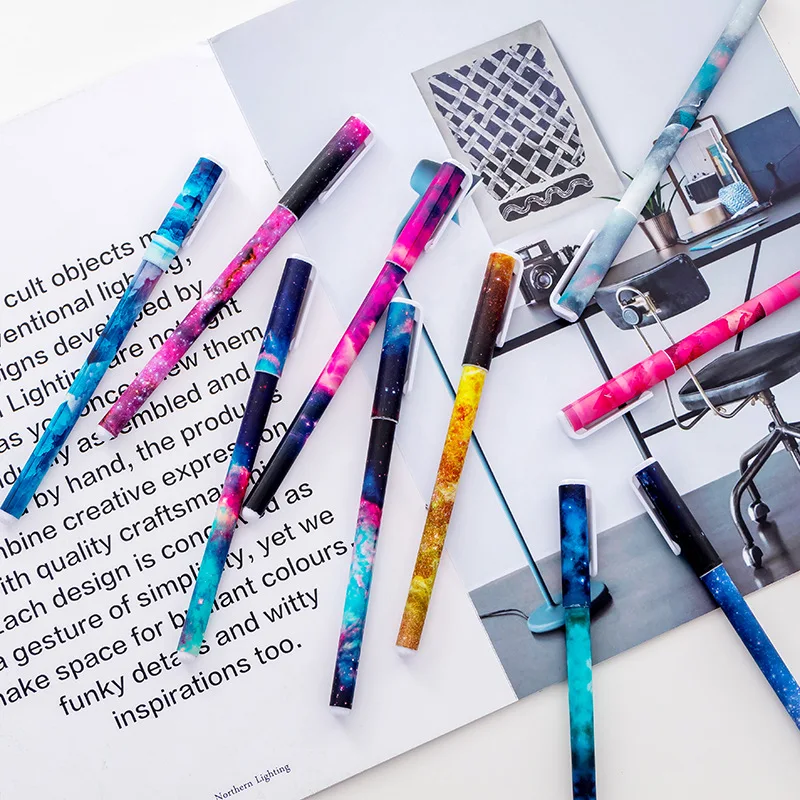 cult objects
ventional lighting,
igns developed by
Lighting are
as you once view them
assembled and
by hand, the products
mbine creative expression
ith quality
Each design is as
a gesture of simplicity, yet we
make space for brilliant colours,
funky details and witty
inspirations too.
Northern Lighting